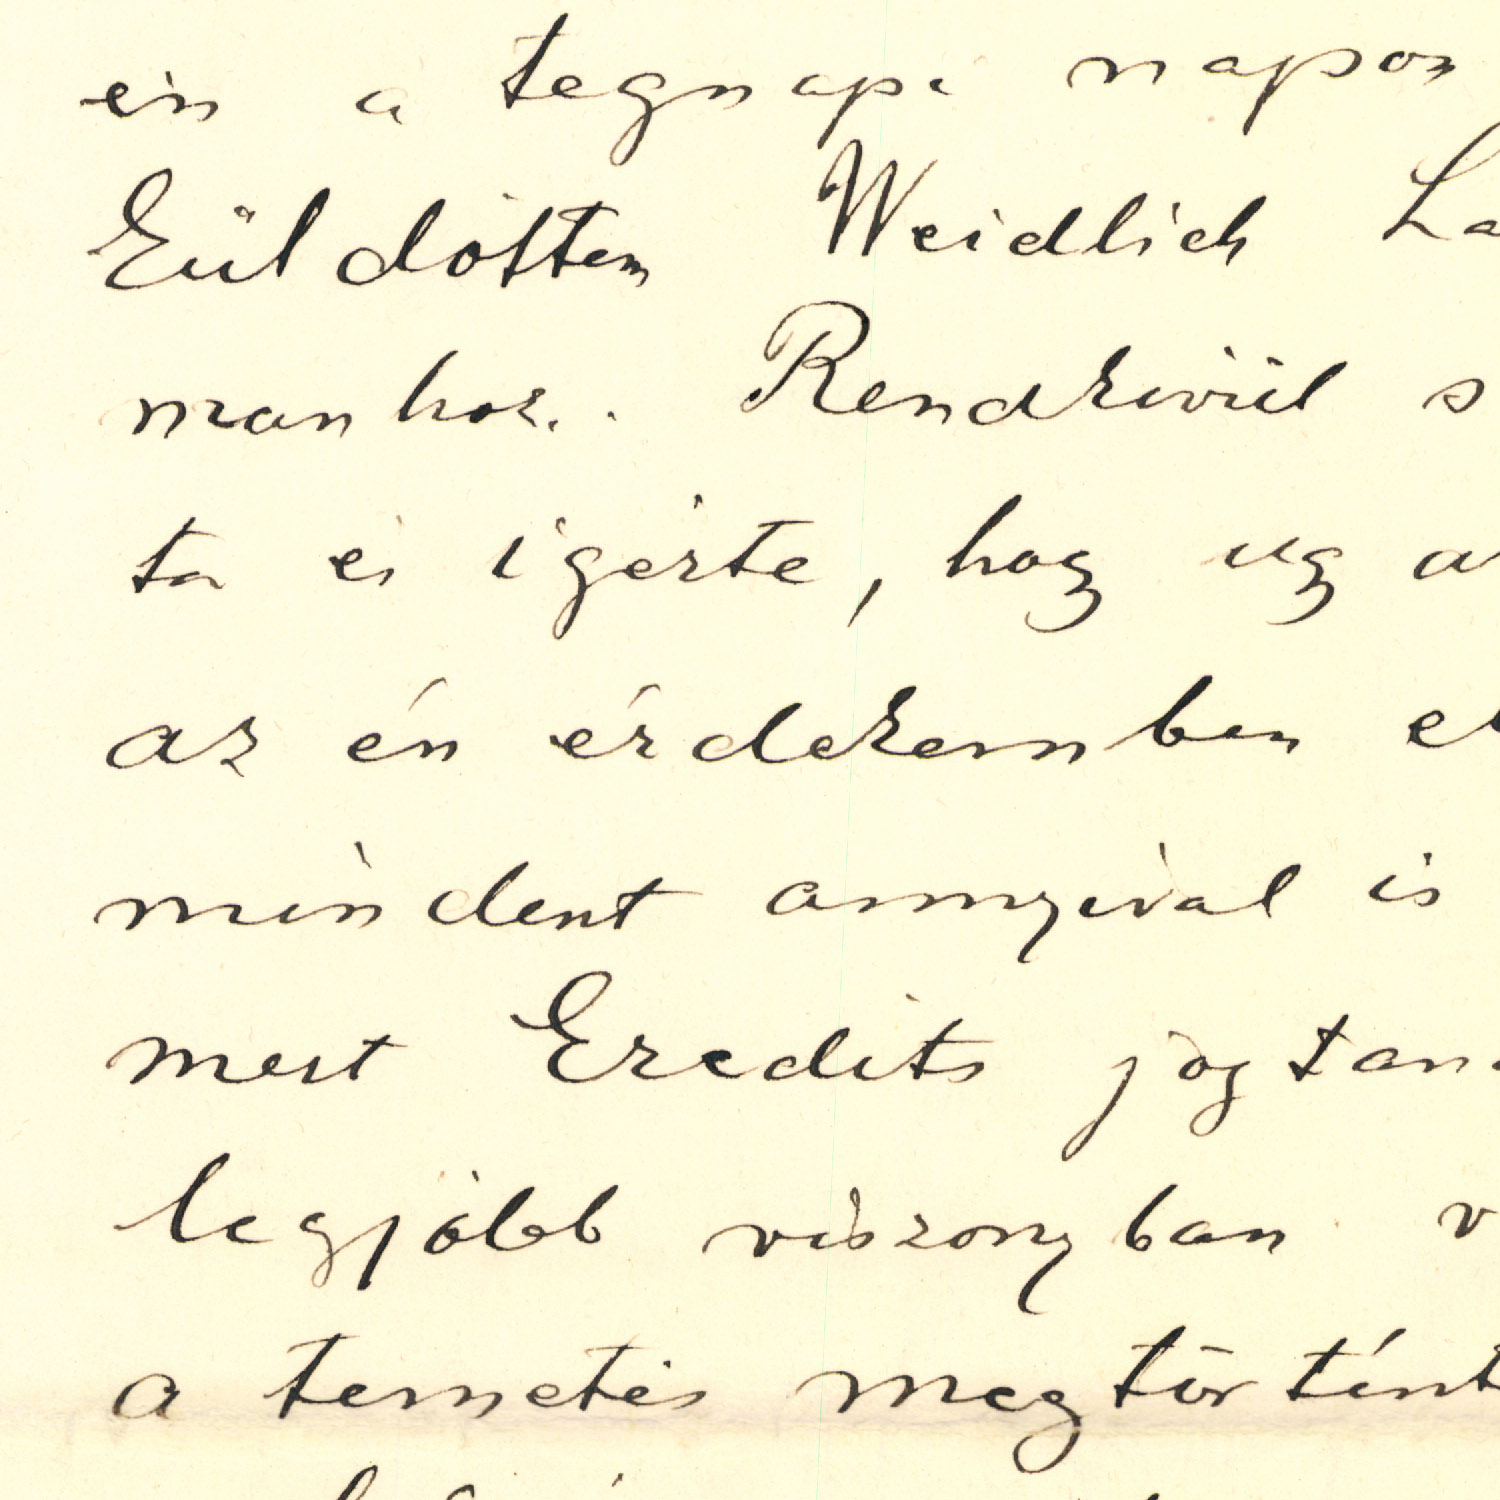 én a tegnapi napon
küldöttem Weidlich La
manhoz. Rendkivül s
ta és igérte, hogy ugy a
az én érdekemben el
mindent annyival is
mert Eredits jogtan
legjobb viszonyban v
a temetés megtörtént